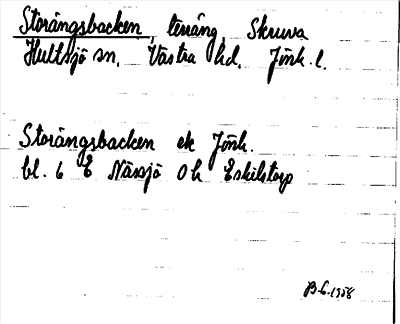 Storängsbacken, terräng, Skruva
Hultsjö sn, Västra hd. Jönk. l.
Storängsbacken ek Jönk.
bl. 6 E Nässjö Oh Eskilstorp
B.G. 1958